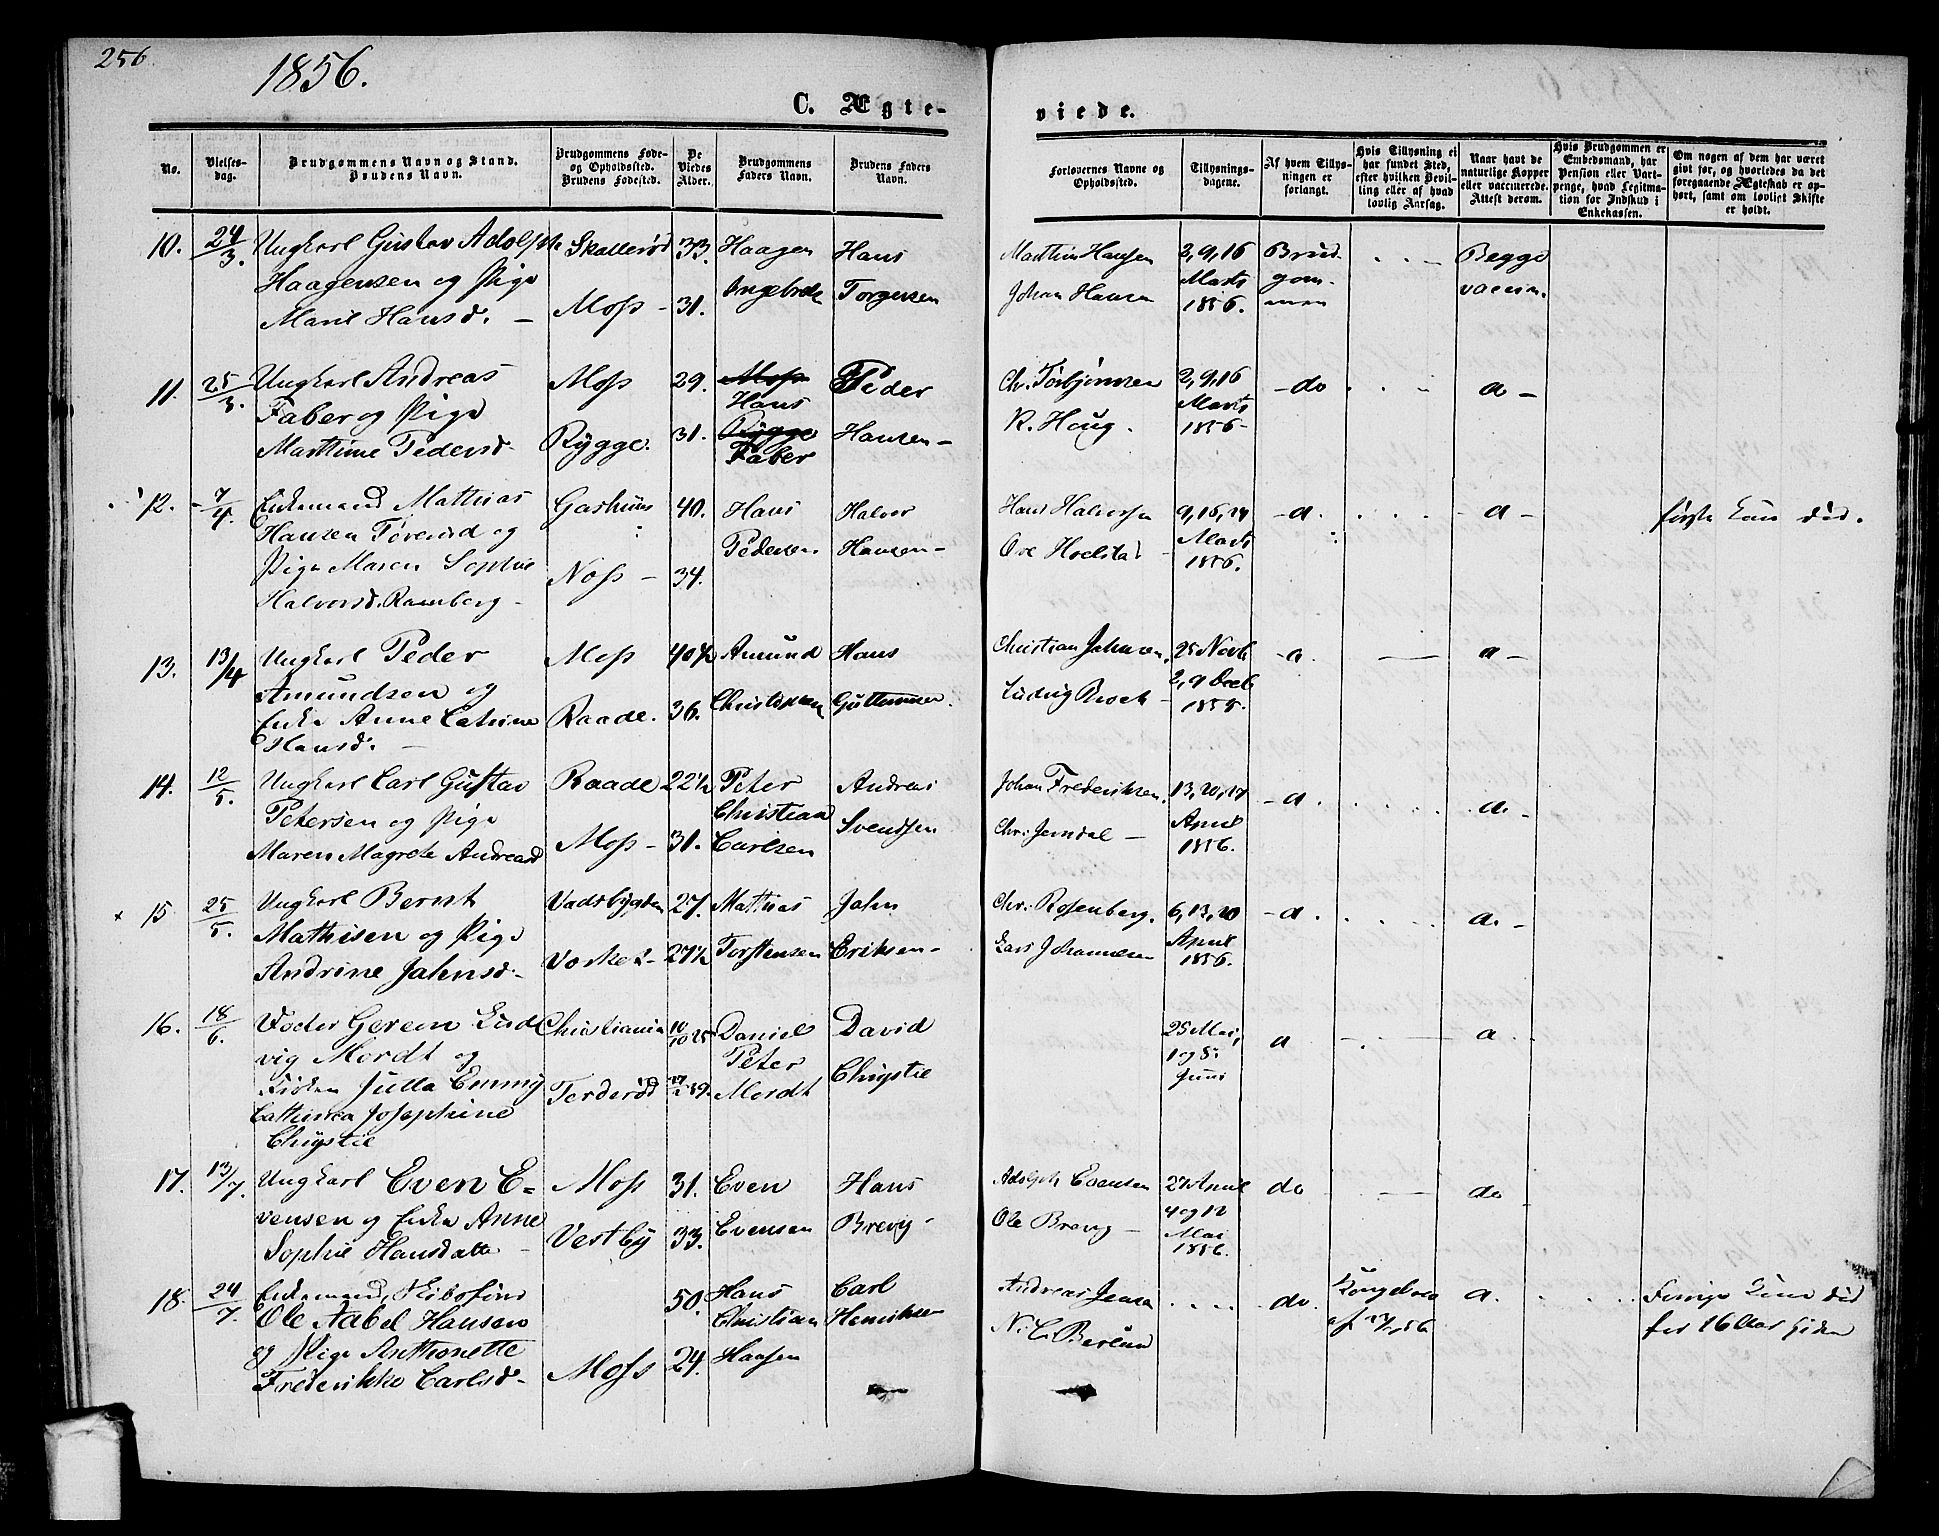 256
1856.
C. Ægte-
viede.
No.
Vielses-
dag.
Brudgommens Navn og Stand.
Brudens Navn.
Brudgommens Føde-
og Opholdssted.
Brudens Fødested.
De
Viedes
Alder.
Brudgommens
Faders Navn.
Brudens Faders
Navn.
Forlovernes Navne og
Opholdssted.
Tillysnings-
dagene.
Af hvem Tillys-
ningen er
forlangt.
Hvis Tillysning ei
har fundet Sted,
efter hvilken Bevil-
ling eller af hvad
lovlig Aarsag.
Naar havt de
naturlige Kopper
eller vaccinerede.
Attest derom.
Hvis Brudgommen er
Embedsmand, har
Pension eller Vart-
penge, hvad Legitima-
tion for Indskud i
Enkekassen.
Om nogen af dem har været
givt før, og hvorledes da det
foregaaende Ægteskab er op-
hørt, samt om lovligt Skifte
er holdt.
10. 24/3. Ungkarl Gustav Adolph Skallerød 33. Haagen Hans
Haagensen og Pige Ingebret Torgersen
Marie Hansd. - Moss - 31.
Matthia Hansen 2, 9, 16 Brud- Begge
Johan Hansen Marts gom- vaccin.
1856. men
11. 25/3. Ungkarl Andreas Moss 29. Moss Peder
Faber og Pige Hans
Marthine Pedersd. Rygge. 31. Rygge Hansen -
Faber
Chr. Torbjørnsen 2, 9, 16 - do a -
R. Houg. Marts
1856 -
12. - 7/4. Enkemand Mathias 40. Hans Halvor
Hansen og Pedersen Hansen -
Pige Maren Sophie Moss - 34.
Halvorsd. Ramberg -
Hans Halvorsen - a. - a - første Kone død.
Marts
1856.
13. 13/4 Ungkarl Peder Moss 40½ Amund Hans
Amundsen og Christensen Guttormsen
Enke Anne Catrine Raade. 36.
Hansd. -
Christian Johnsen, 25 Novb - a. a -
Ludvig Brock - 2, 9 Decb
1855.
14. 12/5. Ungkarl Carl Gustav Raade 22½ Peter Andreas
Petersen og Pige Christian Svendsen
Maren Magrete Andreasd Moss - 31. Carlsen
Johan Frederiksen, 13, 20, 27 - a. a. -
Chr. Jerndal - April
1856.
15 25/5. Ungkarl Bernt 27. Mathias John
Mathisen og Pige Torstensen Eriksen -
Andrine Johnsd. - 27½
Chr. Rosenberg. 6, 13, 20 - a. a. -
Lars Johannesen April
1856.
16. 18/6. Gerem Lud- Christiania Daniel David
vig Mordt og Peter
Frøken Julla Emmy Mordt Chrystie
Cathinca Josephine
Chrystie
25 Mai, a a.
1 og 8.
Juni
17. 13/7. Ungkarl Even E- Moss 31. Even Hans
vensen og Enke Anne Vestby 33. Evensen Brevig -
Sophie Hansdatte -
Adolph Evensen 27 April do do
Ole Brevig - 4 og 12
Mai
1856.
18. 24/7. Enkemand, 50. Hans Carl
Ole Aabel Hansen Christian Henriksen
og Pige Anthonette Moss 24. Hansen
Frederikke Carlsd -
Andreas Jensen do. a. Forrige Kone død
N. C. Berlin for 16 Aar siden